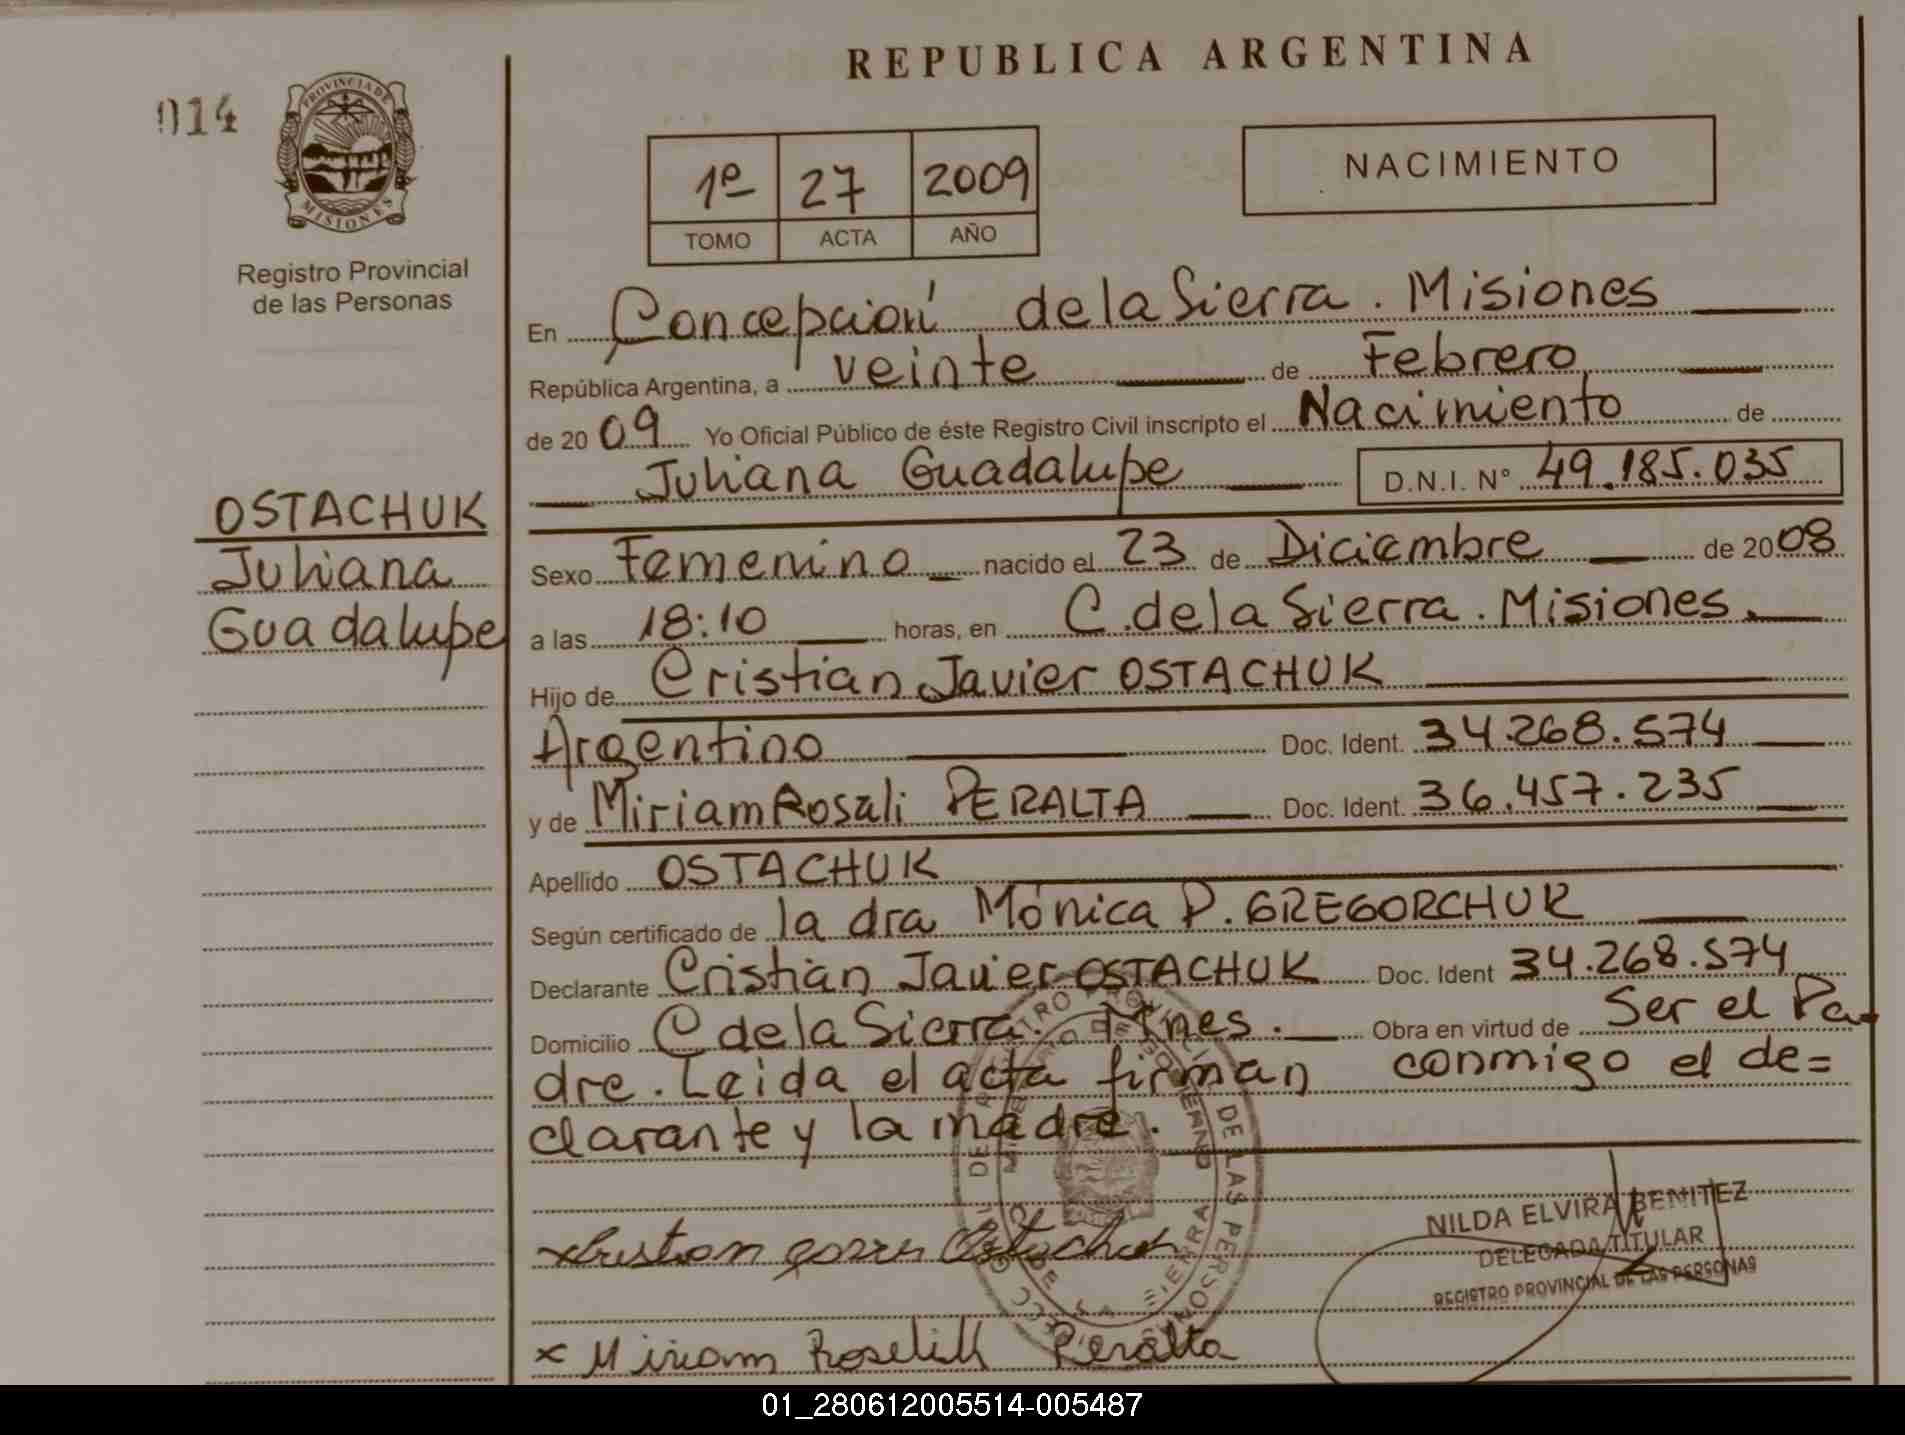 REPUBLICA ARGENTINA
014
PROVINCIA DE
MISIONES
Registro Provincial
de las Personas
1º 27 2009
TOMO ACTA AÑO
NACIMIENTO
En Concepción de la Sierra. Misiones
República Argentina, a veinte de Febrero
de 2009 Yo Oficial Público de éste Registro Civil inscripto el Nacimiento de
Juliana Guadalupe D.N.I. Nº 49.185.035
OSTACHUK
Juliana
Guadalupe
Sexo Femenino nacido el 23 de Diciembre de 2008
a las 18:10 horas, en C. de la Sierra. Misiones.
Hijo de Cristian Javier OSTACHUK
Argentino Doc. Ident. 34.268.574
y de Miriam Rosali PERALTA Doc. Ident. 36.457.235
Apellido OSTACHUK
Según certificado de la dra Mónica P. GREGORCHUK
Declarante Cristian Javier OSTACHUK Doc. Ident 34.268.574
Domicilio C de la Sierra. Mnes. Obra en virtud de Ser el Pa
dre. Leida el acta firman conmigo el de=
clarante y la madre.
NILDA ELVIRA BENITEZ
DELEGADA TITULAR
REGISTRO PROVINCIAL DE LAS PERSONAS
x Miriam Peralta
01_280612005514-005487